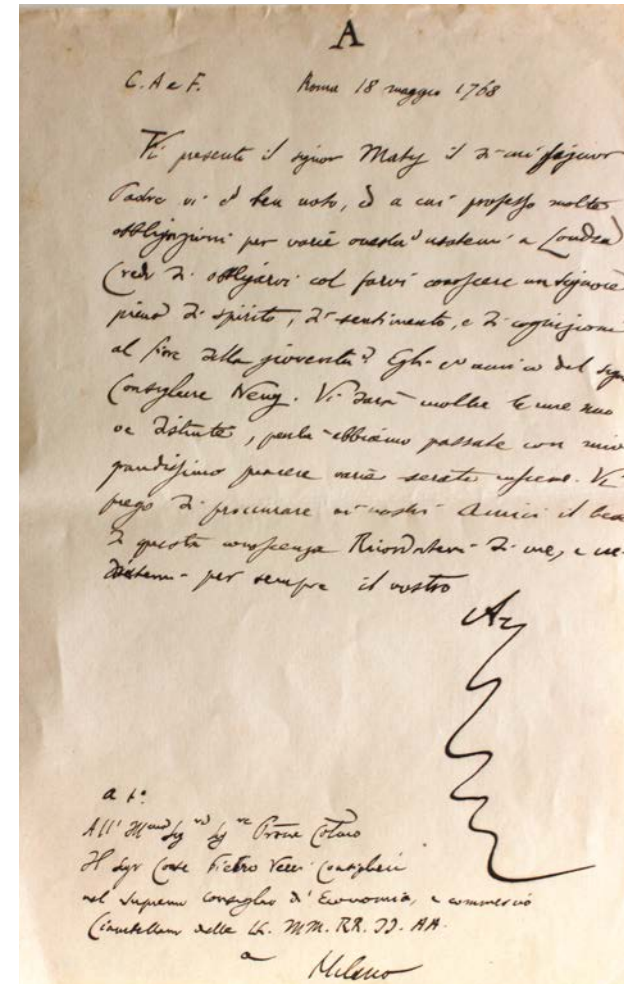 A
C. A e F. Roma 18 maggio 1768
Vi presento il signor Maty il di cui signor
Padre vi è ben noto, ed a cui professo molte
obbligazioni per varie onestà usatemi a Londra
Credo di obbligarvi col farvi conoscere un signore
pieno di spirito, di sentimento, e di cognizioni
al fiore della gioventù. Egli è amico del sigr
Consigliere Neny. Vi darà molte mie nuo
ve distinte, perchè abbiamo passate con mio
grandissimo piacere varie serate insieme. Vi
prego di procurare ai nostri Amici il bene
di questa conoscenza Ricordatevi di me, e cre
detemi per sempre il vostro
a to
All'
Il Sigr Conte Pietro Verri Consigliere
nel Supremo Consiglio d'Economia, e commercio
Ciambellano delle LL. MM. RR. II. AA.
a Milano